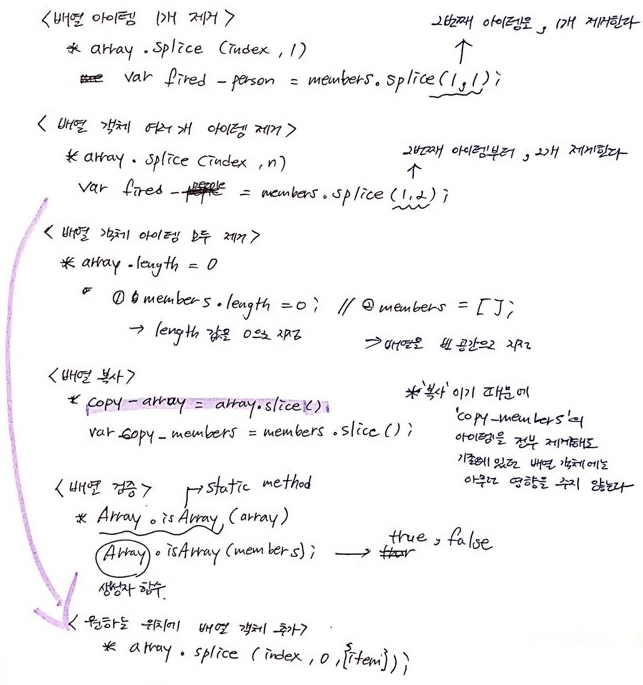 <배열 아이템 1개 제거>
2번째 아이템을, 1개 제거한다
* array.splice (index, 1)
var fired-person = members.splice(1,1);
<배열 객체 여러 개 아이템 제거>
* array.splice (index, n)
2번째 아이템부터, 2개 제거한다
var fired-people = members.splice (1,2);
<배열 객체 아이템 모두 제거>
* array.length = 0
① members.length = 0; // ② members = [];
→ length 값을 0으로 지정
→ 배열을 빈 공간으로 지정
<배열 복사>
* copy-array = array.slice()
var copy-members = members.slice();
* '복사'이기 때문에
'copy-members'의
아이템을 전부 제거해도
기존에 있던 배열 객체에는
아무런 영향을 주지 않는다
<배열 검증>
→ static method
* Array.isArray(array)
Array.isArray(members); → true, false
생성자 함수.
<원하는 위치에 배열 객체 추가>
* array.splice (index, 0, [{item}]);